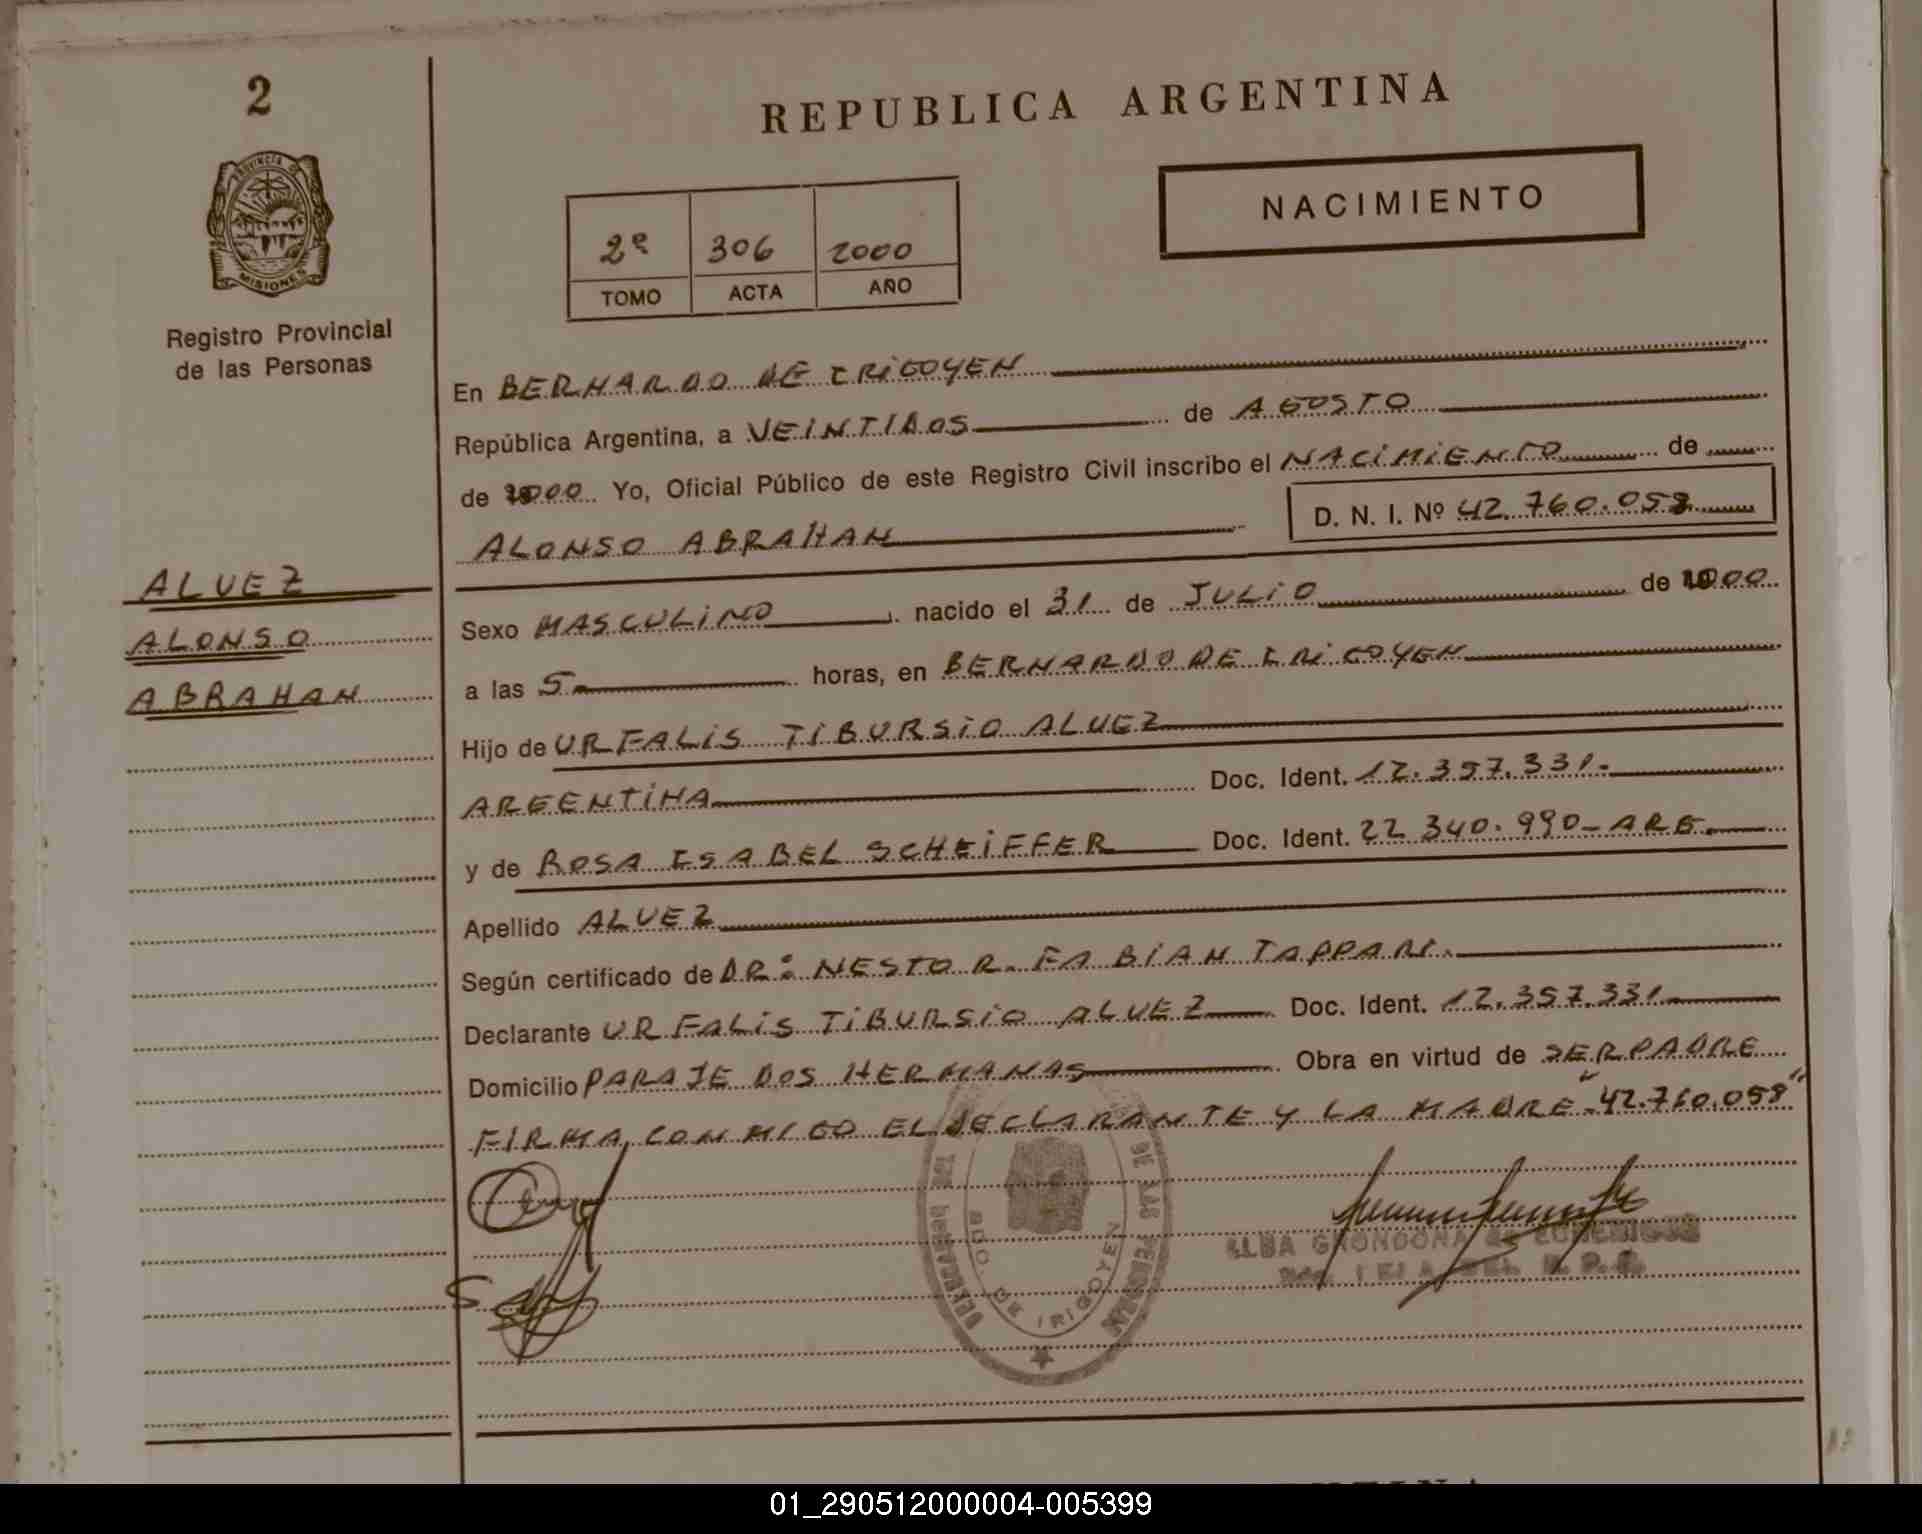 2
REPUBLICA ARGENTINA
PROVINCIA DE
MISIONES
NACIMIENTO
2º 306 2000
TOMO ACTA AÑO
Registro Provincial
de las Personas
En BERNARDO DE IRIGOYEN
República Argentina, a VEINTIDOS de AGOSTO
de 2000 Yo, Oficial Público de este Registro Civil inscribo el NACIMIENTO de
D. N. I. Nº 42.760.058
ALONSO ABRAHAN
ALVEZ
ALONSO
ABRAHAN
Sexo MASCULINO nacido el 31 de JULIO de 2000
a las 5 horas, en BERNARDO DE IRIGOYEN
Hijo de URFALIS TIBURSIO ALVEZ
ARGENTINA Doc. Ident. 12.357.331.
y de ROSA ISABEL SCHEIFFER Doc. Ident. 22 340.990-ARG.
Apellido ALVEZ
Según certificado de DR: NESTOR. FABIAN TAPPARI.
Declarante URFALIS TIBURSIO ALVEZ Doc. Ident. 12.357.331
Domicilio PARAJE DOS HERMANAS Obra en virtud de SER PADRE
FIRMA CONMIGO EL DECLARANTE Y LA MADRE "42.760.058"
DE LAS
BDO. DE IRIGOYEN
ELBA GRONDONA de
R. P. P.
01_290512000004-005399